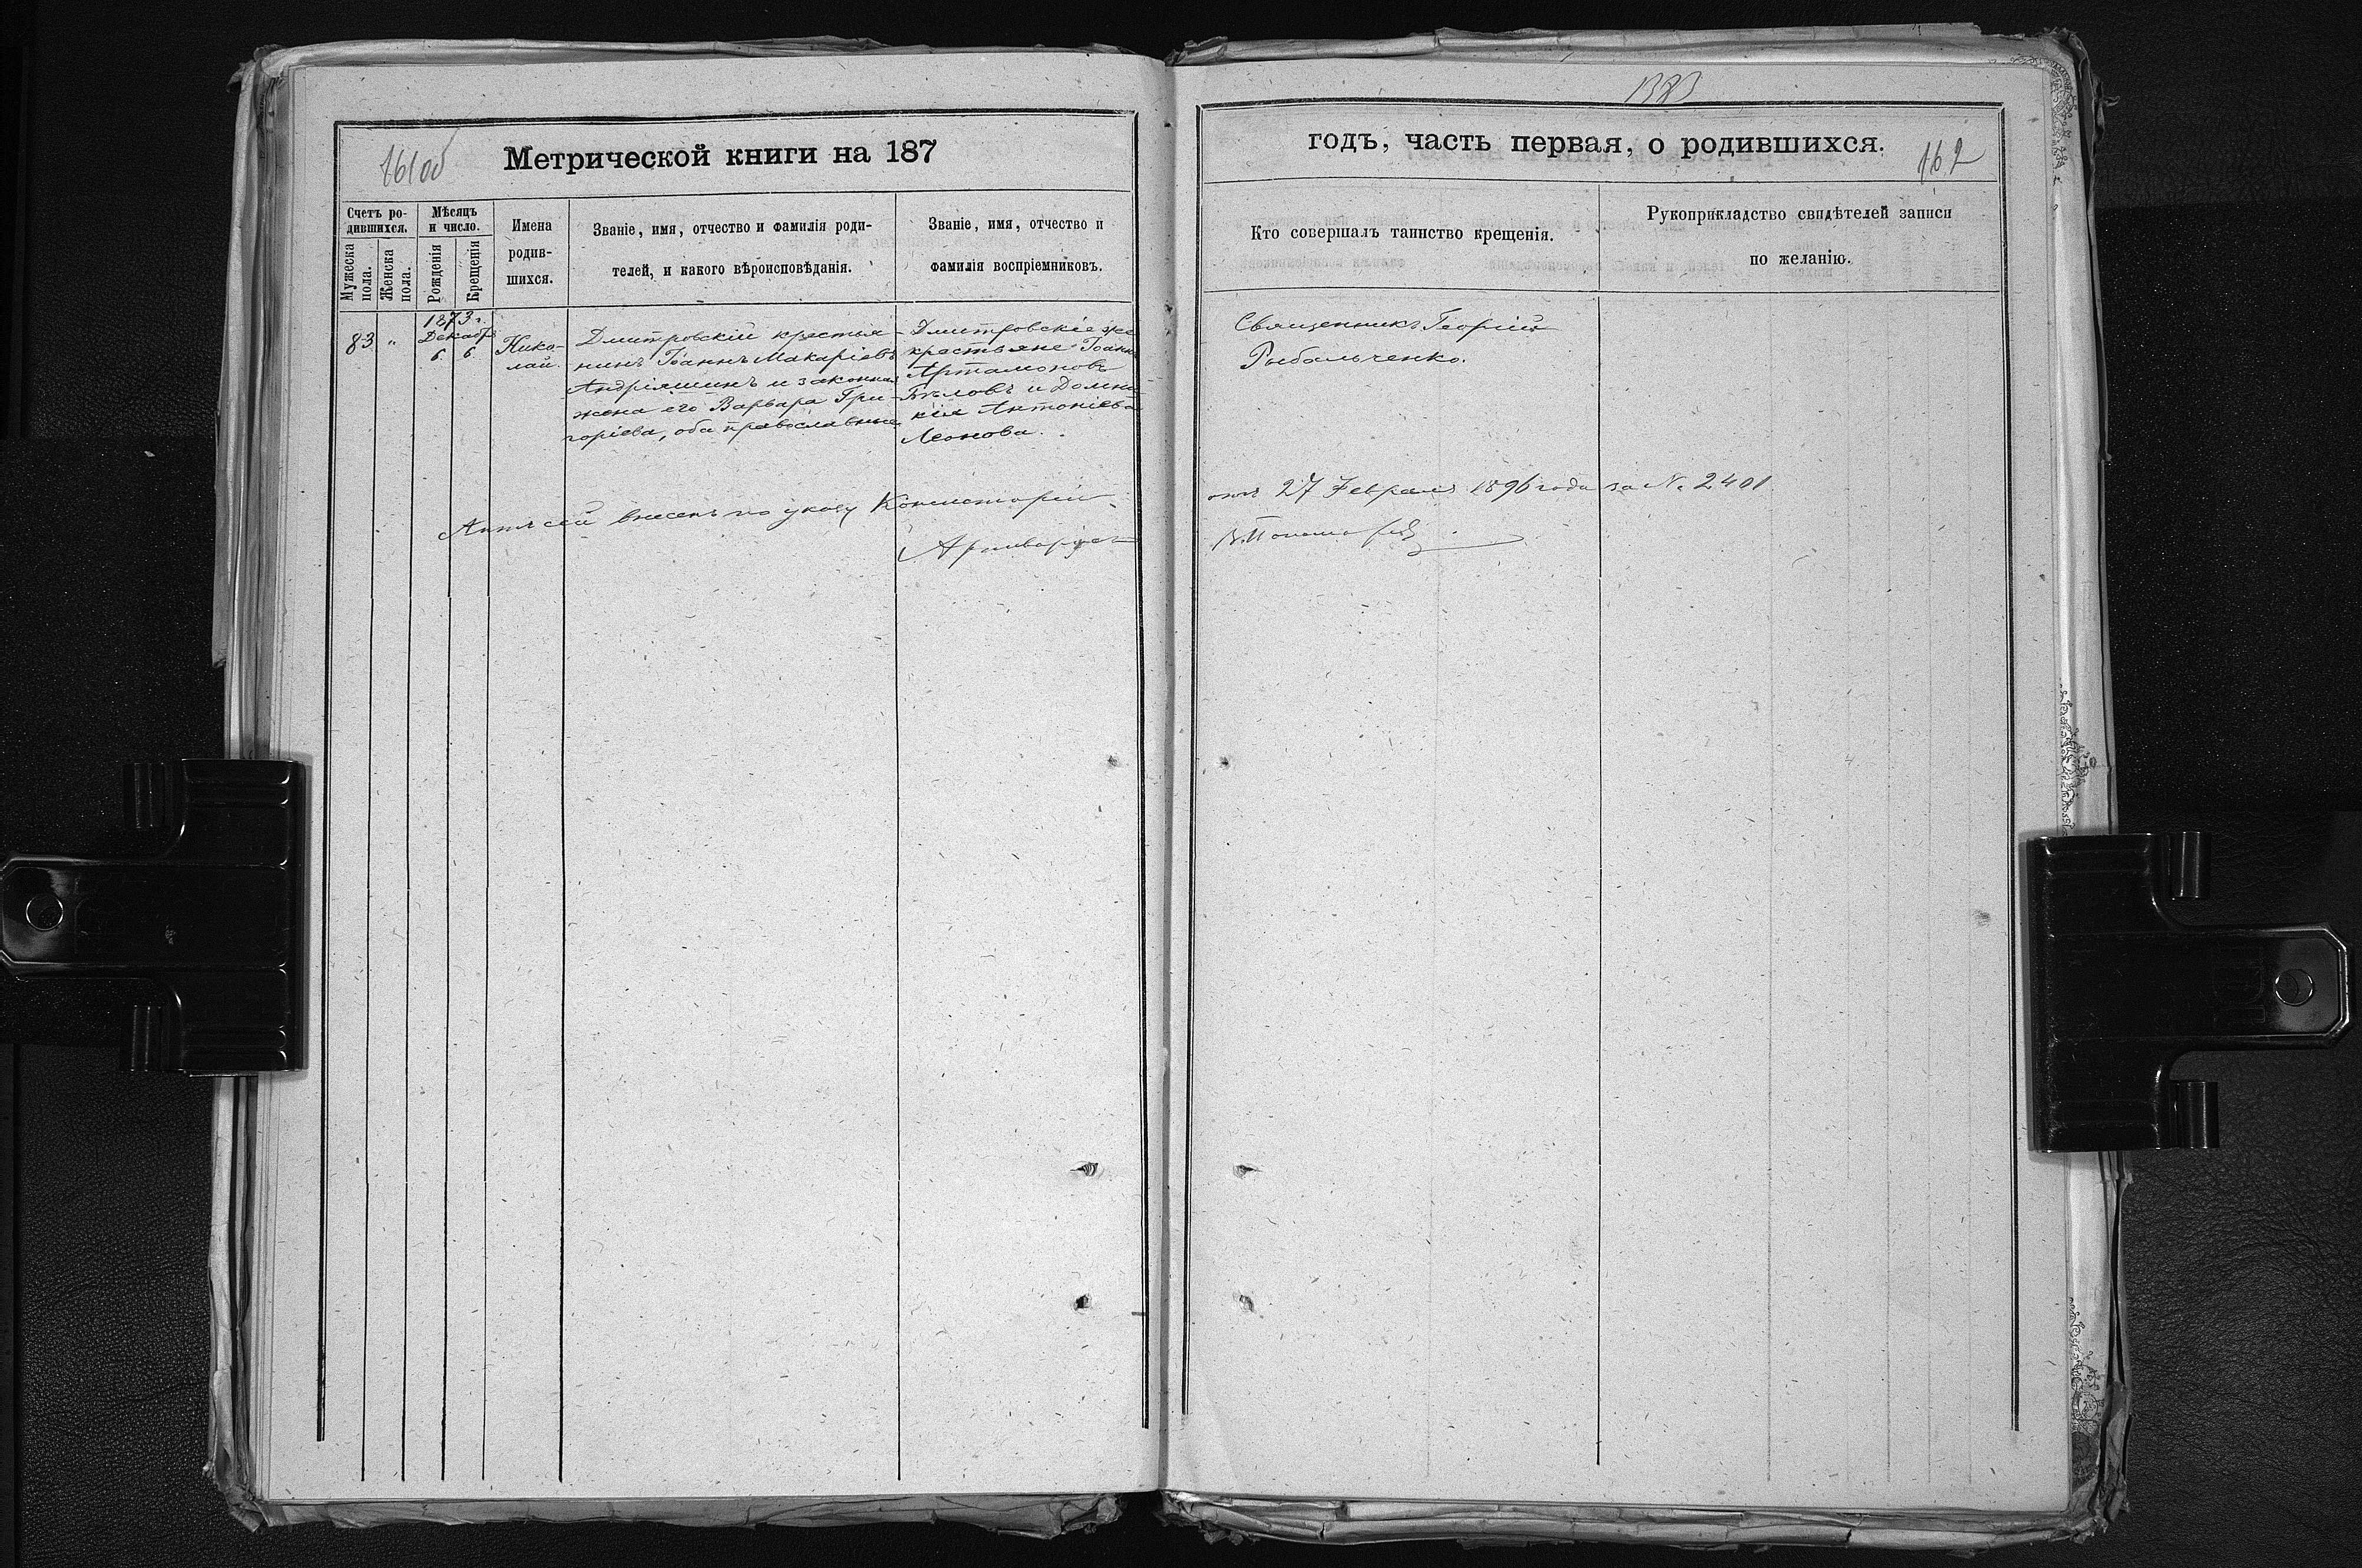 1383
161об
Метрической книги на 187
годъ, часть первая, о родившихся.
162
Счетъ ро-
дившихся.
Мужеска
пола.
Женска
пола.
Мѣсяцъ
и число.
Рожденія
Крещенія
Имена
родив-
шихся.
Званіе, имя, отчество и фамилія роди-
телей, и какого вѣроисповѣданія.
Званіе, имя, отчество и
фамилія воспріемниковъ.
Кто совершалъ таинство крещенія.
Рукоприкладство свидѣтелей записи
по желанію.
83
"
1873 г.
Декабр
6 6
Нико-
лай.
Дмитровскій крестья-
нинъ Іоаннъ Макаріевъ
Андріяшинъ и законная
жена его Варвара Гри-
горіева, оба православные
Дмитровскіе
крестьяне Іоаннъ
Артамоновъ
Бѣловъ и Домни-
кія Антоніева
Леонова.
Священникъ Георгій
Рыбальченко.
Актъ сей внесенъ по указу Консисторіи
отъ 27 Февраля 1896 года за № 2401
Архиваріусъ